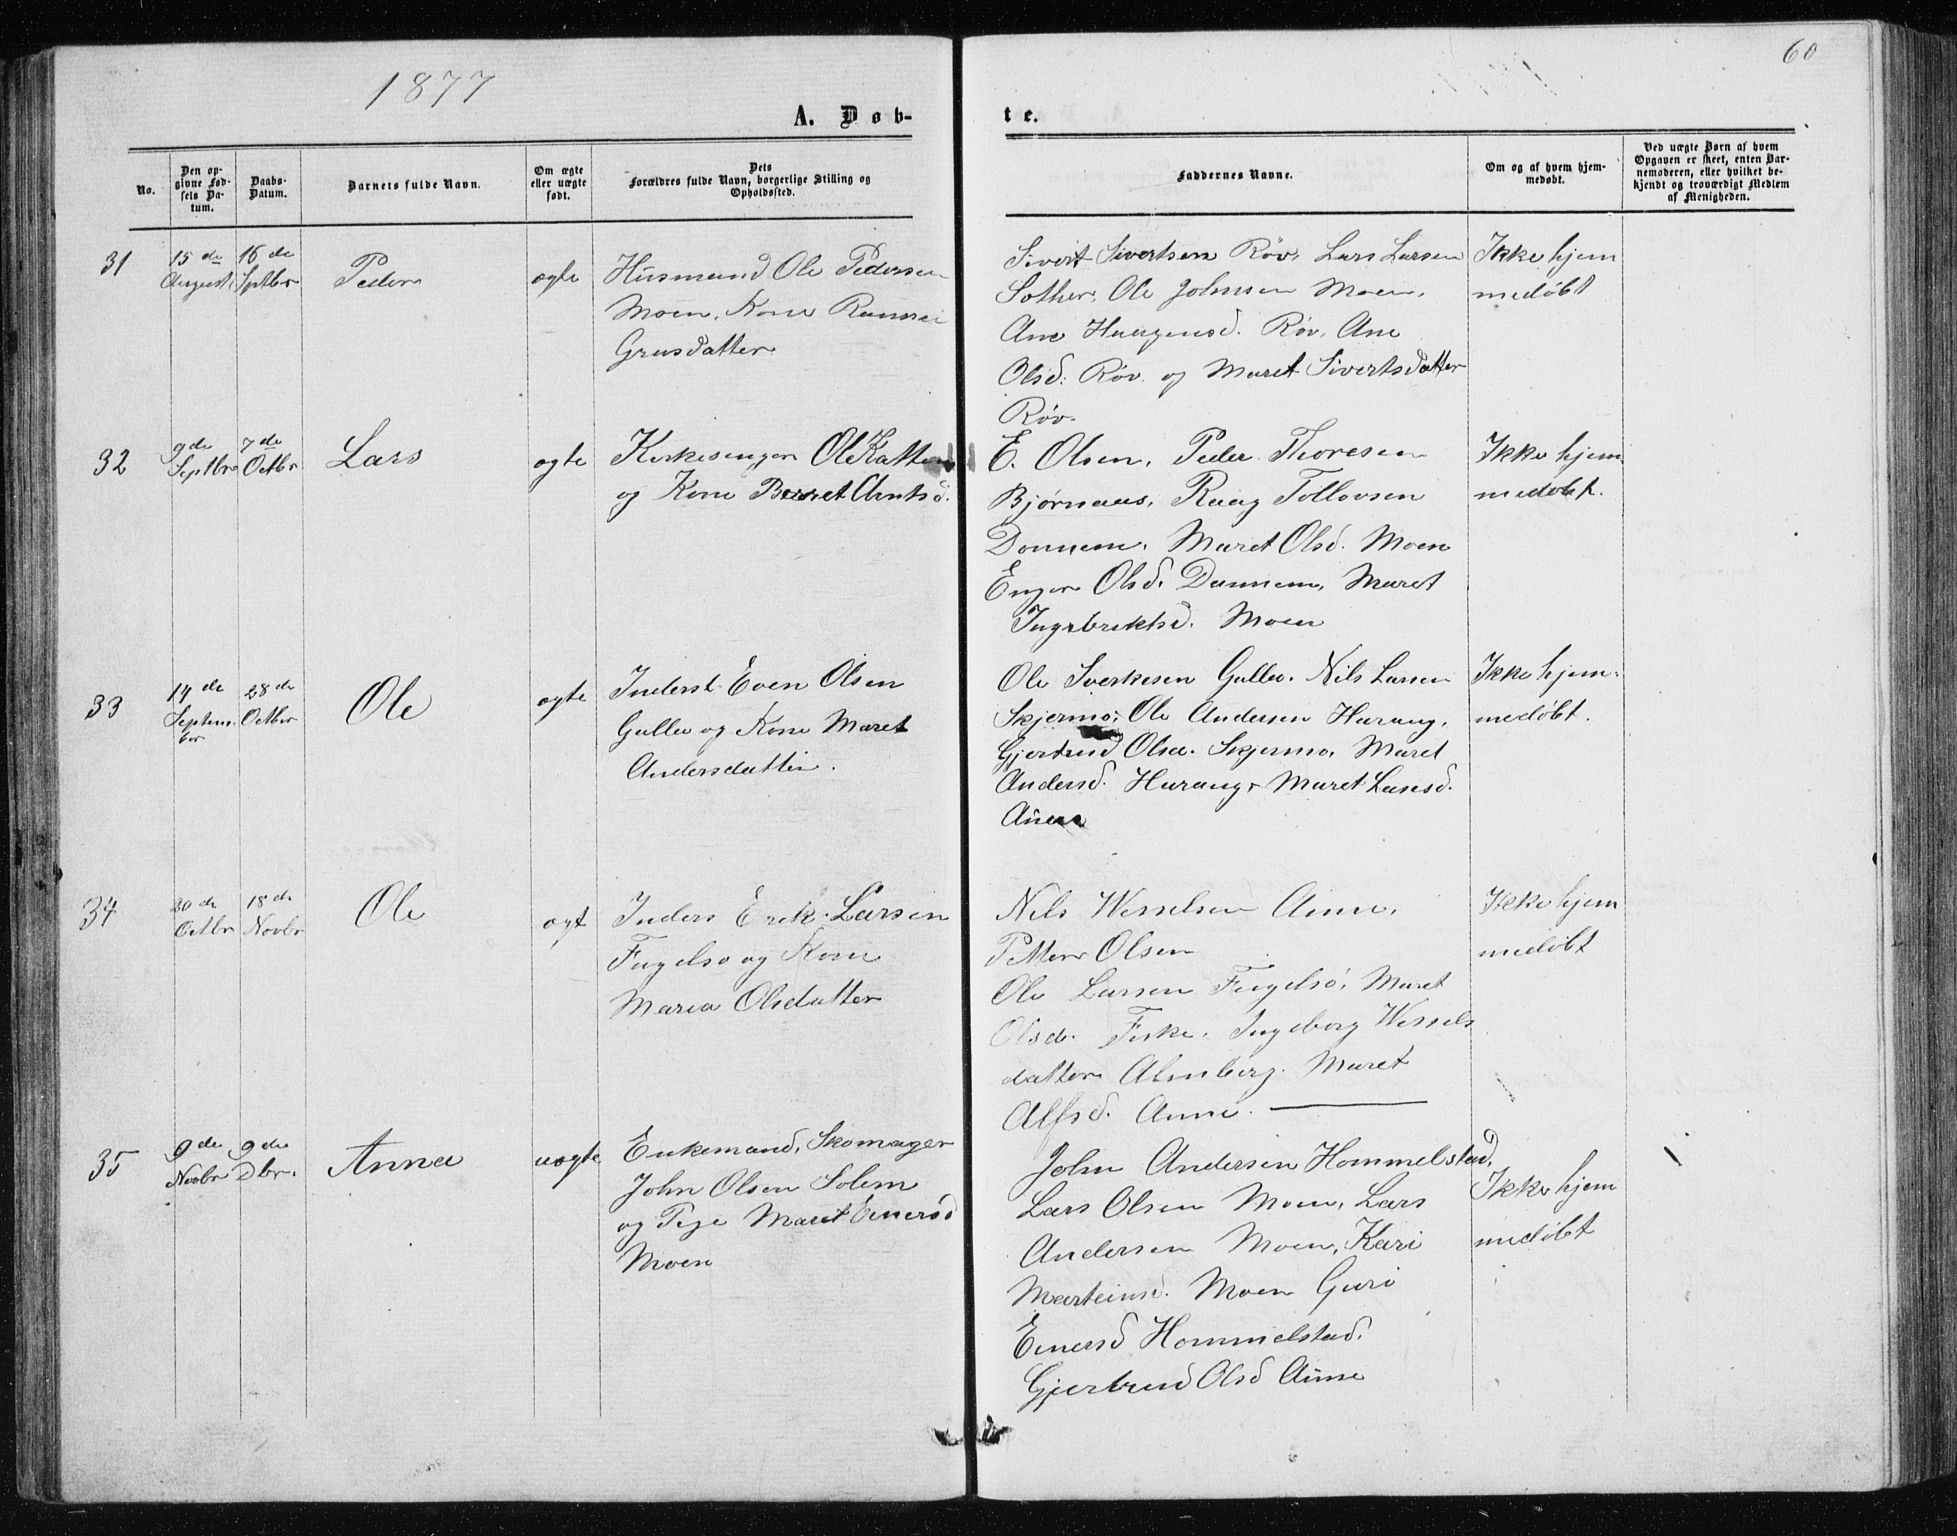 1877
60
A. Døb-
te.
No.
Den op-
givne Fød-
sels Da-
tum.
Daabs-
Datum.
Barnets fulde Navn.
Om ægte
eller uægte
født.
Dets
Forældres fulde Navn, borgerlige Stilling og
Opholdssted.
Faddernes Navne.
Om og af hvem hjem-
medøbt.
Ved uægte Børn af hvem
Opgaven er skeet, enten Bar-
nemoderen, eller hvilket be-
kjendt og troværdigt Medlem
af Menigheden.
31
15de
August
16de
Sptbr
Peder
ægte
Husmand Ole Pedersen
Moen, Kone
Grusdatter
Sivert Sivertsen Røv, Lars Larsen
Sother, Ole Johnsen Moen,
Ane Haagensd. Røv, Ane
Olsd. Røv og Maret Sivertsdatter
Røv.
Ikke hjem
medøbt
32
9de
Septbr
7de
Octbr
Lars
ægte
Kirkesanger Ole Kattem
og Kone Beret Arntsd.
E. Olsen, Peder Thoresen
Bjørnaas, Raag Tollovsen
Donnem, Maret Olsd. Moen
Olsd. Donnem, Maret
Ingebriktsd. Moen
Ikke hjem
medøbt.
33
14de
Septem
ber
28de
Octbr
Ole
ægte
Inderst Even Olsen
Gulla og Kone Maret
Andersdatter.
Ole Sverkesen Gulla. Nils Larsen
Skjermo, Ole Andersen Harang,
Gjertrud Olsd. Skjermo, Maret
Andersd. Harang, Maret Larsd.
Aune
Ikke hjem-
medøbt.
34
20de
Octbr
18de
Novbr
Ole
ægt
Inders Erik Larsen
Fugelsø og Kone
Maria Olsdatter
Nils Wesselsen Aune,
Petter Olsen
Ole Larsen Fugelsø, Maret
Olsd. Fiske. Ingeborg Wessels
datter Almberg. Maret
Alfsd. Aune.
Ikke hjem
medøbt
35
9de
Novbr
9de
Dbr.
Anna
uægte
Enkemand, Skomager
John Olsen Solem
og Pige Maret Einersd
Moen
John Andersen Hommelstad,
Lars Olsen Moen, Lars
Andersen Moen, Kari
Marteinsd. Moen Guri
Einersd Hommelstad.
Gjertrud Olsd Aune
Ikke hjem
medøbt